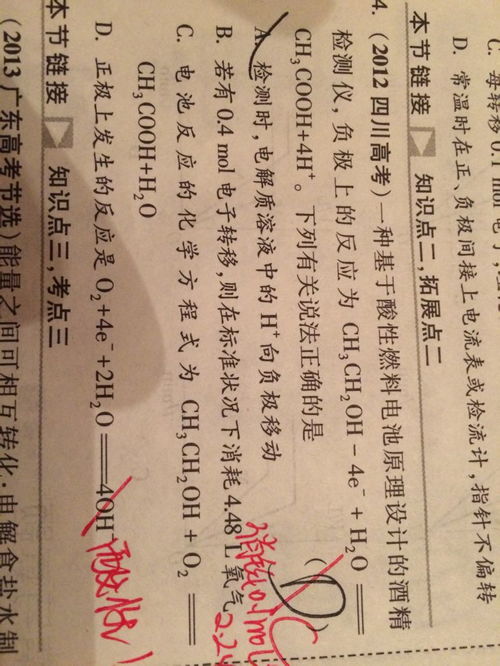 C. 每转移0.1 mol 电子,
D. 常温时在正、负极间接上电流表或检流计,指针不偏转
本节链接 知识点二,拓展点二
4. (2012 四川高考)一种基于酸性燃料电池原理设计的酒精
检测仪,负极上的反应为 CH₃CH₂OH－4e⁻＋H₂O＝
CH₃COOH+4H⁺。下列有关说法正确的是 ( D C
A. 检测时,电解质溶液中的 H⁺向负极移动
B. 若有0.4 mol 电子转移,则在标准状况下消耗4.48 L 氧气
消耗0.1mol
2.24
C. 电池反应的化学方程式为 CH₃CH₂OH + O₂ ＝
CH₃COOH+H₂O
D. 正极上发生的反应是 O₂+4e⁻+2H₂O＝4OH⁻
酸性
本节链接 知识点三,考点三
(2013 广东高考节选)能量之间可相互转化:电解食盐水制